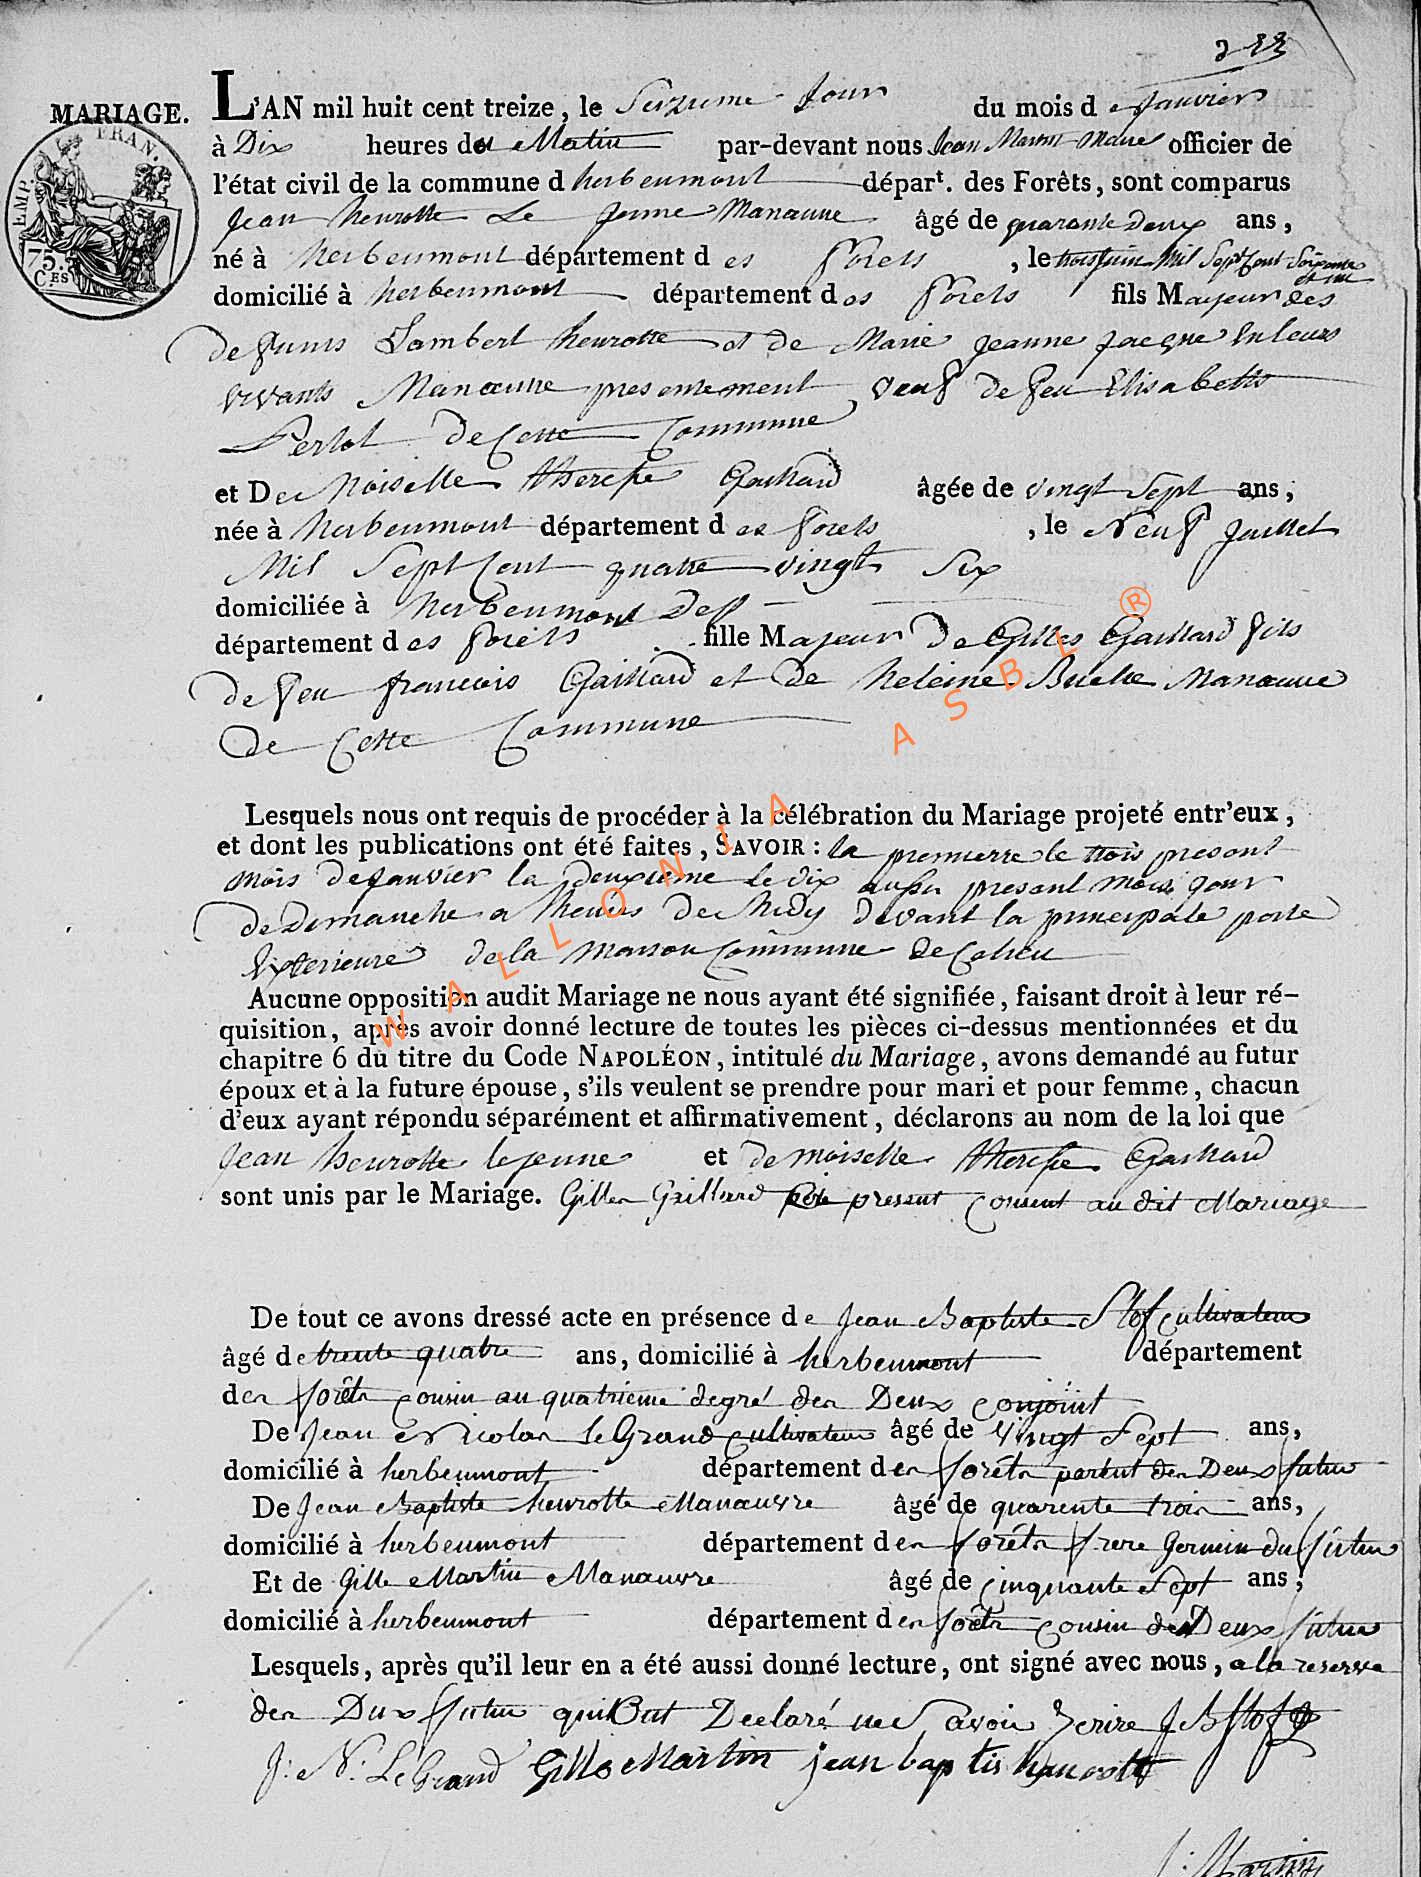 MARIAGE.
L'AN mil huit cent treize, le Seizieme Jour du mois de Janvier
EMP. FRAN.
75. C.ES
à Dix heures du Matin par-devant nous Jean Martin Maire officier de
l'état civil de la commune d herbeumont départ. des Forêts, sont comparus
Jean henrotte Le Jeune Manœuvre âgé de quarante Deux ans,
né à herbeumont département d es forets, le trois juin Mil Sept Cent Soixante
et un
domicilié à herbeumont département d es forets fils Majeur des
defunts Lambert henrotte et de Marie jeanne jacque En leurs
vivants Manœuvre presentement veuf de feu Elisabette
Perlot de Cette Commune
et Demoiselle therese Gaillard âgée de vingt Sept ans,
née à herbeumont département d es forets, le Neuf Juillet
Mil Sept Cent quatre vingt Six
domiciliée à herbeumont Dep
département d es forets fille Majeur De Gilles Gaillard fils
de feu francois Gaillard et de heleine Manœuvre
de Cette Commune
Lesquels nous ont requis de procéder à la célébration du Mariage projeté entr'eux,
et dont les publications ont été faites, SAVOIR : la premierre le trois presant
mois de janvier la deuxieme le dix aussi presant mois jour
de Dimanche a heures de Midy devant la principale porte
Exterieure de la maison Commune de Ce lieu
Aucune opposition audit Mariage ne nous ayant été signifiée, faisant droit à leur ré-
quisition, après avoir donné lecture de toutes les pièces ci-dessus mentionnées et du
chapitre 6 du titre du Code NAPOLÉON, intitulé du Mariage, avons demandé au futur
époux et à la future épouse, s'ils veulent se prendre pour mari et pour femme, chacun
d'eux ayant répondu séparément et affirmativement, déclarons au nom de la loi que
Jean henrotte le jeune et demoiselle therese Gaillard
sont unis par le Mariage. Gilles Gaillard present consent au dit Mariage
De tout ce avons dressé acte en présence de Jean Baptiste Stof Cultivateur
âgé de trente quatre ans, domicilié à herbeumont département
des forêts cousin au quatrieme degré des Deux conjoint
De Jean Nicolas Le Grand Cultivateur âgé de vingt Sept ans,
domicilié à herbeumont département des forêts parent des Deux futur
De Jean Baptiste henrotte Manœuvre âgé de quarente trois ans,
domicilié à herbeumont département des forêts frere Germain du futur
Et de Gille Martin Manœuvre âgé de cinquante Sept ans;
domicilié à herbeumont département des forêts cousin des Deux futur
Lesquels, après qu'il leur en a été aussi donné lecture, ont signé avec nous, a la reserve
des Deux futur qui ont Declaré ne Savoir Ecrire J B Stof
J: N: LeGrand Gille Martin jean baptis henrotte
J: Martin
WALLONIA ASBL ®